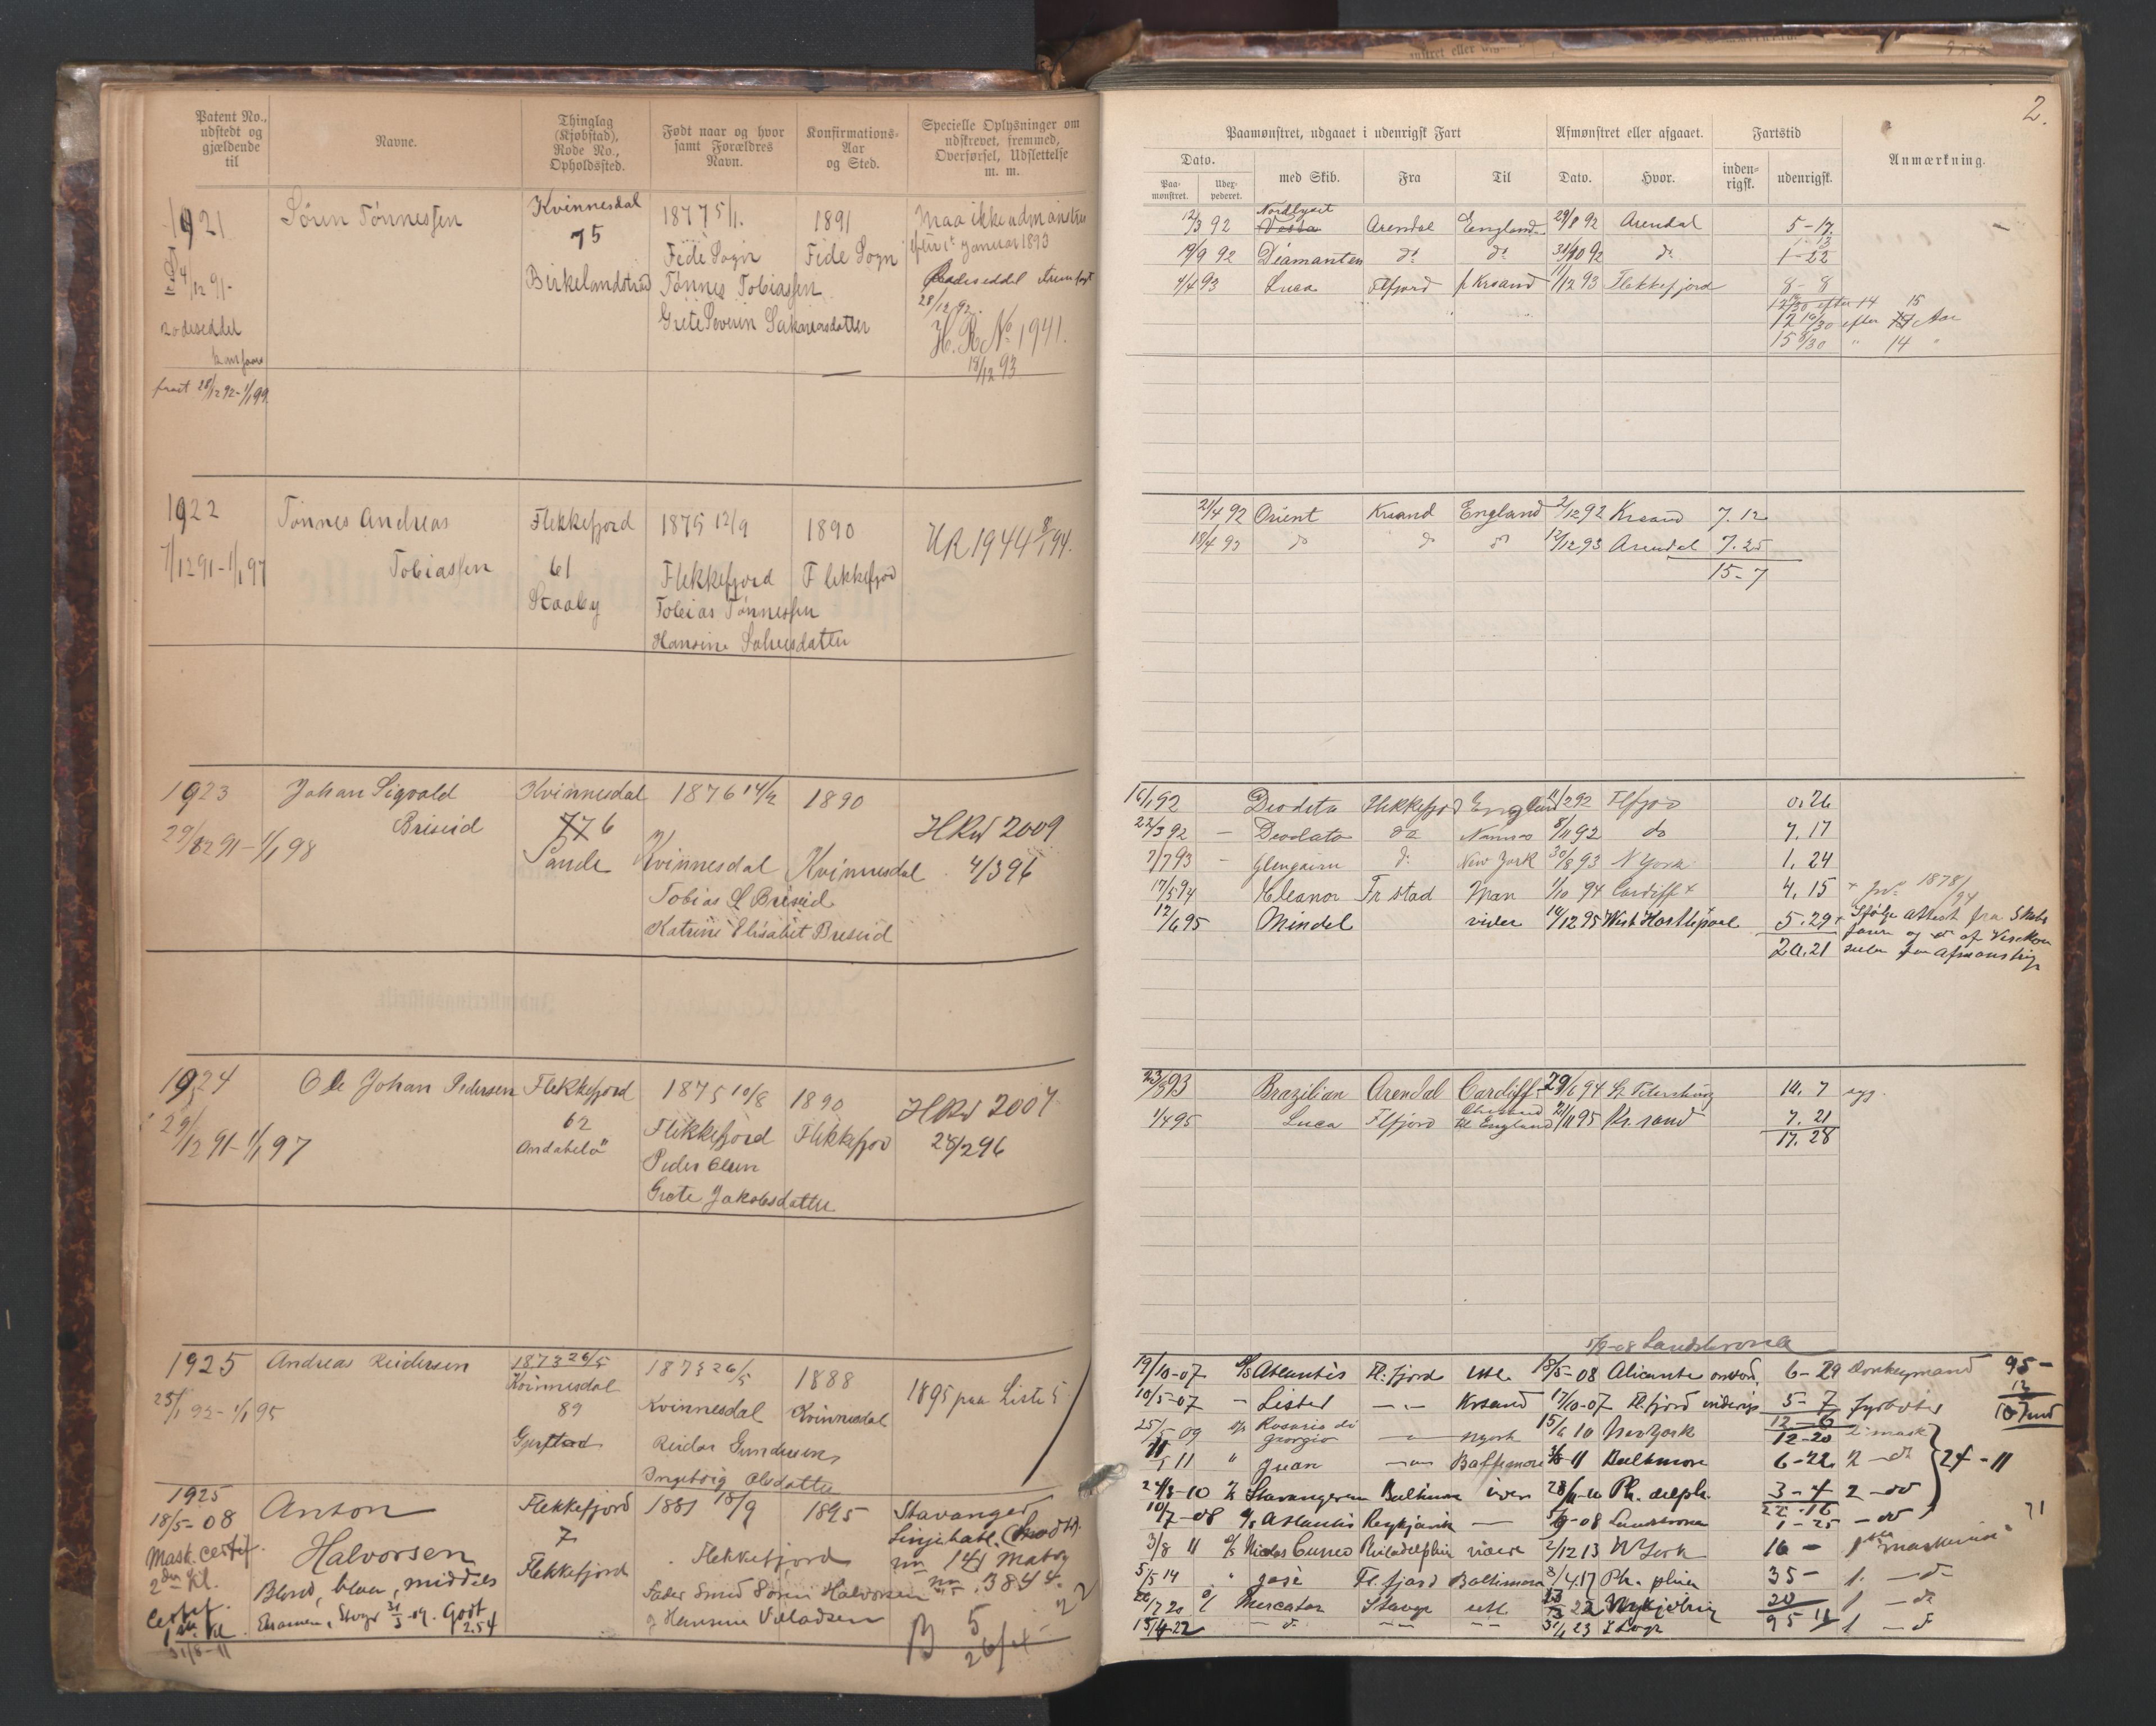 2.
Patent No., udstedt og gjældende til
Navne.
Thinglag (Kjøbstad), Rode No., Opholdssted.
Født naar og hvor samt Forældres Navn.
Konfirmations-Aar og Sted.
Specielle Oplysninger om udskrevet, fremmed, Overførsel, Udslettelse m. m.
Paamønstret, udgaaet i udenrigsk Fart
Dato.
Paamønstret.
Uderpederet.
med Skib.
Fra
Til
Afmønstret eller afgaaet.
Dato.
Hvor.
Fartstid
indenrigsk.
udenrigsk.
Anmærkning.
1921
4/12 91-
Rodeseddel
fraat 28/12 92-1/1 99.
Søren Tønnessen
Kvinnesdal
75
Birkelandstrad
1877 5/1.
Fede Sogn
Tønnes Tobiassen
Grete Severin Sakariasdatter
1891
Fede Sogn
Maa ikke udmønstres
efter 1ste Januar 1893
Rodeseddel
28/12/92.
H. R No 1941.
18/12 93
12/3 92 Nordlyset Arendal England 29/8 92 Arendal 5-17.
19/9 92 Diamanten do do 31/10 92 do 1-22
4/4 93 Luca Flfjord f Krsand 11/12 93 Flekkefjord 8-8
12 10/30 efter 15 Aar
15 8/30 " 14 "
1922
1/12 91-1/1 97
Tønnes Andreas
Tobiassen
Flekkefjord
61
1875 12/9
Flekkefjord
Tobias Tønnessen
Hansine Salvesdatter
1890
Flekkefjord
HR 1944 8/1 94.
21/4 92 Orient Krsand England 2/12 92 Krsand 7.12
18/4 93 do do do 12/12 93 Arendal 7.25
15-7
1923
29/12 91-1/1 98
Johan Sigvald
Briseid
Kvinnesdal
776
Sande
1876 14/2
Kvinnesdal
Tobias S Briseid
Katrine Elisabet Breseid
1890
Kvinnesdal
HRW 2009
4/3 96
16/1 92 Deodata Flekkefjord England 11/2 92 Flfjord 0.26
22/3 92 - Deodato do 8/11 92 do 7.17
7/7 93 - Glengairn do New York 30/8 93 N York 1.24
17/5 94 Eleanor Fr stad 1/10 94 Cardiff + 4.15 + 1878/94
12/6 95 Mindel videre 14/12 95 West Hartlepool 5.29 + Ifølge Attest fra Skibs
20.21
1924
29/12 91-1/1 97
Ole Johan Pedersen
Flekkefjord
62
Andabelø
1875 10/8
Flekkefjord
Peder Olsen
Grete Jakobsdatter
1890
Flekkefjord
HRW 2007
28/2 96
23/3 93 Brazilian Arendal Cardiff 29/6 94 St Petersburg 10.7 syg.
1/4 95 Luca Flfjord til England 21/11 95 Kr.sand 7.21
17.28
1925
25/1 92-1/1 95
Andreas Reidersen
1873 26/5
Kvinnesdal
89
1873 26/5
Kvinnesdal
Reidar Gundersen
Ingeborg Olsdatter
1888
Kvinnesdal
1895 paa Liste 5
1925
18/5-08
Mask. Certif.
2den Kl.
Certif.
1ste Kl.
31/8-11
Anton
Halvorsen
Blond, blaa, middels
Examen, Stvgr 31/3-09. Godt
2.54
Flekkefjord
7
Flekkefjord
1881 18/9
Flekkefjord
Fader Smed Søren Halvorsen
og Hansine Villadsen
1895
Stavanger
no 141
no 3844.
5/9-08 Landskrona
19/10-07 D/S Atlantis Fl.fjord utl. 18/5-08 Alicante 6-29 Donkeymand 95-
10/5-07 - Lister - Krsand 17/10-07 Fl.fjord indenrigs 5-7 fyrbøter
25/5 09 Rosario di Giorgio Nyork 15/6 10 New York 12-20 2 mask
11 " Juan Baltimore 11 Baltimore 6-22 2 - do } 24-11
24/8-10 Stavangeren Baltimore 28/11-10 Ph. delph. 3-4 2 - do
22-16
10/7-08 D/S Atlantis Reykjavik - 5/9-08 Landskrona 1-25 - do
3/8 11 D/S Nicolas Cuneo Philadelphia videre 2/12 13 N York 16- 1ste maskinist
5/5 14 " José Fl.fjord Baltimore 8/4 17 Ph. 35- 1. - do
Mercator Stavgr utl 20 1 - do
15/4-22 - do - - 95 1 - do